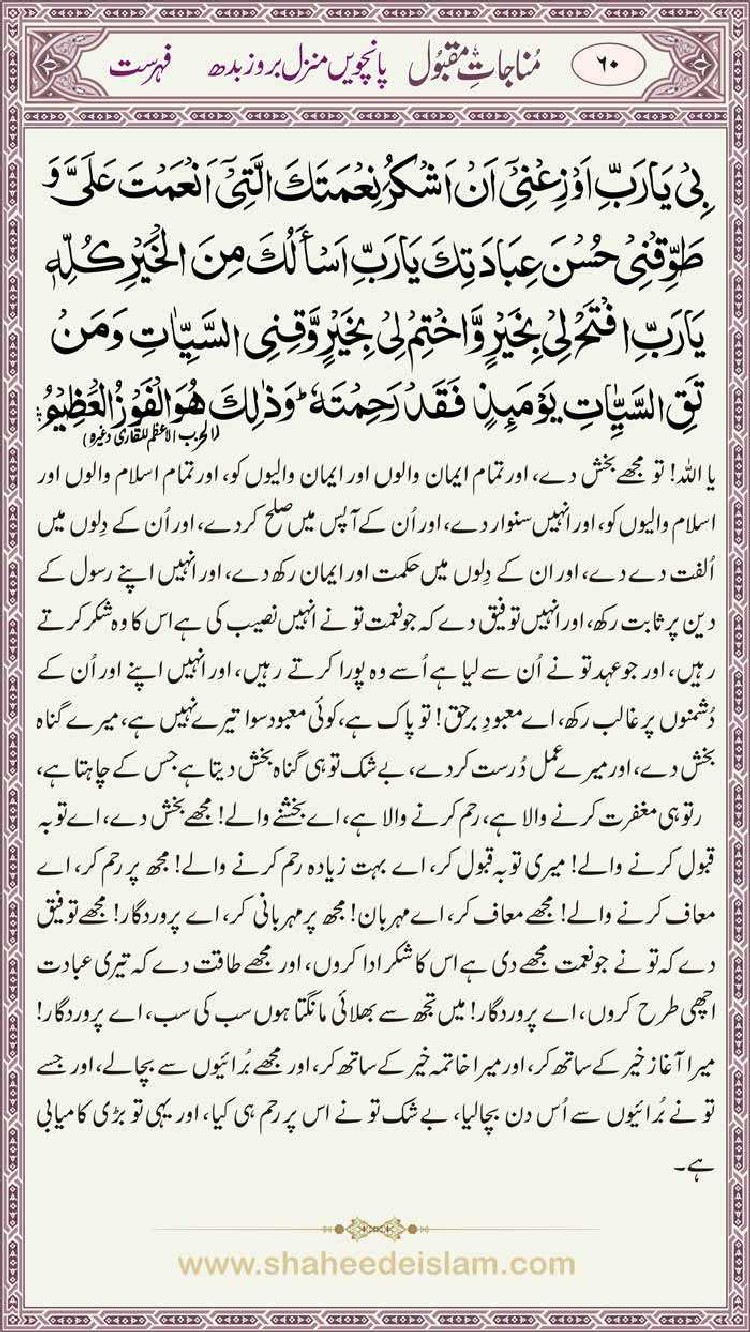 ۶۰ مُناجاتِ مقبُول پانچویں منزل بروز بدھ فہرست
بِیْ یَارَبِّ اَوْزِعْنِیْٓ اَنْ اَشْکُرَ نِعْمَتَكَ الَّتِیْٓ اَنْعَمْتَ عَلَیَّ وَ
طَوِّقْنِیْ حُسْنَ عِبَادَتِكَ یَارَبِّ اَسْاَلُكَ مِنَ الْخَیْرِ كُلِّهٖ
یَارَبِّ افْتَحْ لِیْ بِخَیْرٍ وَّاخْتِمْ لِیْ بِخَیْرٍ وَّقِنِی السَّیِّاٰتِ وَمَنْ
تَقِ السَّیِّاٰتِ یَوْمَئِذٍ فَقَدْ رَحِمْتَهٗ ؕ وَذٰلِكَ هُوَ الْفَوْزُ الْعَظِیْمُ
(الحزب الاعظم للقاری وغیرہ)
یا اللہ! تو مجھے بخش دے، اور تمام ایمان والوں اور ایمان والیوں کو، اور تمام اسلام والوں اور
اسلام والیوں کو، اور انہیں سنوار دے، اور اُن کے آپس میں صلح کردے، اور اُن کے دِلوں میں
اُلفت دے دے، اور ان کے دِلوں میں حکمت اور ایمان رکھ دے، اور انہیں اپنے رسول کے
دین پر ثابت رکھ، اور انہیں توفیق دے کہ جو نعمت تو نے انہیں نصیب کی ہے اس کا وہ شکر کرتے
رہیں، اور جو عہد تو نے اُن سے لیا ہے اُسے وہ پورا کرتے رہیں، اور انہیں اپنے اور اُن کے
دُشمنوں پر غالب رکھ، اے معبودِ برحق! تو پاک ہے، کوئی معبود سوا تیرے نہیں ہے، میرے گناہ
بخش دے، اور میرے عمل دُرست کردے، بے شک تو ہی گناہ بخش دیتا ہے جس کے چاہتا ہے،
رتو ہی مغفرت کرنے والا ہے، رحم کرنے والا ہے، اے بخشنے والے! مجھے بخش دے، اے توبہ
قبول کرنے والے! میری توبہ قبول کر، اے بہت زیادہ رحم کرنے والے! مجھ پر رحم کر، اے
معاف کرنے والے! مجھے معاف کر، اے مہربان! مجھ پر مہربانی کر، اے پروردگار! مجھے توفیق
دے کہ تو نے جو نعمت مجھے دی ہے اس کا شکر ادا کروں، اور مجھے طاقت دے کہ تیری عبادت
اچھی طرح کروں، اے پروردگار! میں تجھ سے بھلائی مانگتا ہوں سب کی سب، اے پروردگار!
میرا آغاز خیر کے ساتھ کر، اور میرا خاتمہ خیر کے ساتھ کر، اور مجھے بُرائیوں سے بچالے، اور جسے
تو نے بُرائیوں سے اُس دن بچالیا، بے شک تو نے اس پر رحم ہی کیا، اور یہی تو بڑی کامیابی
ہے۔
www.shaheedeislam.com